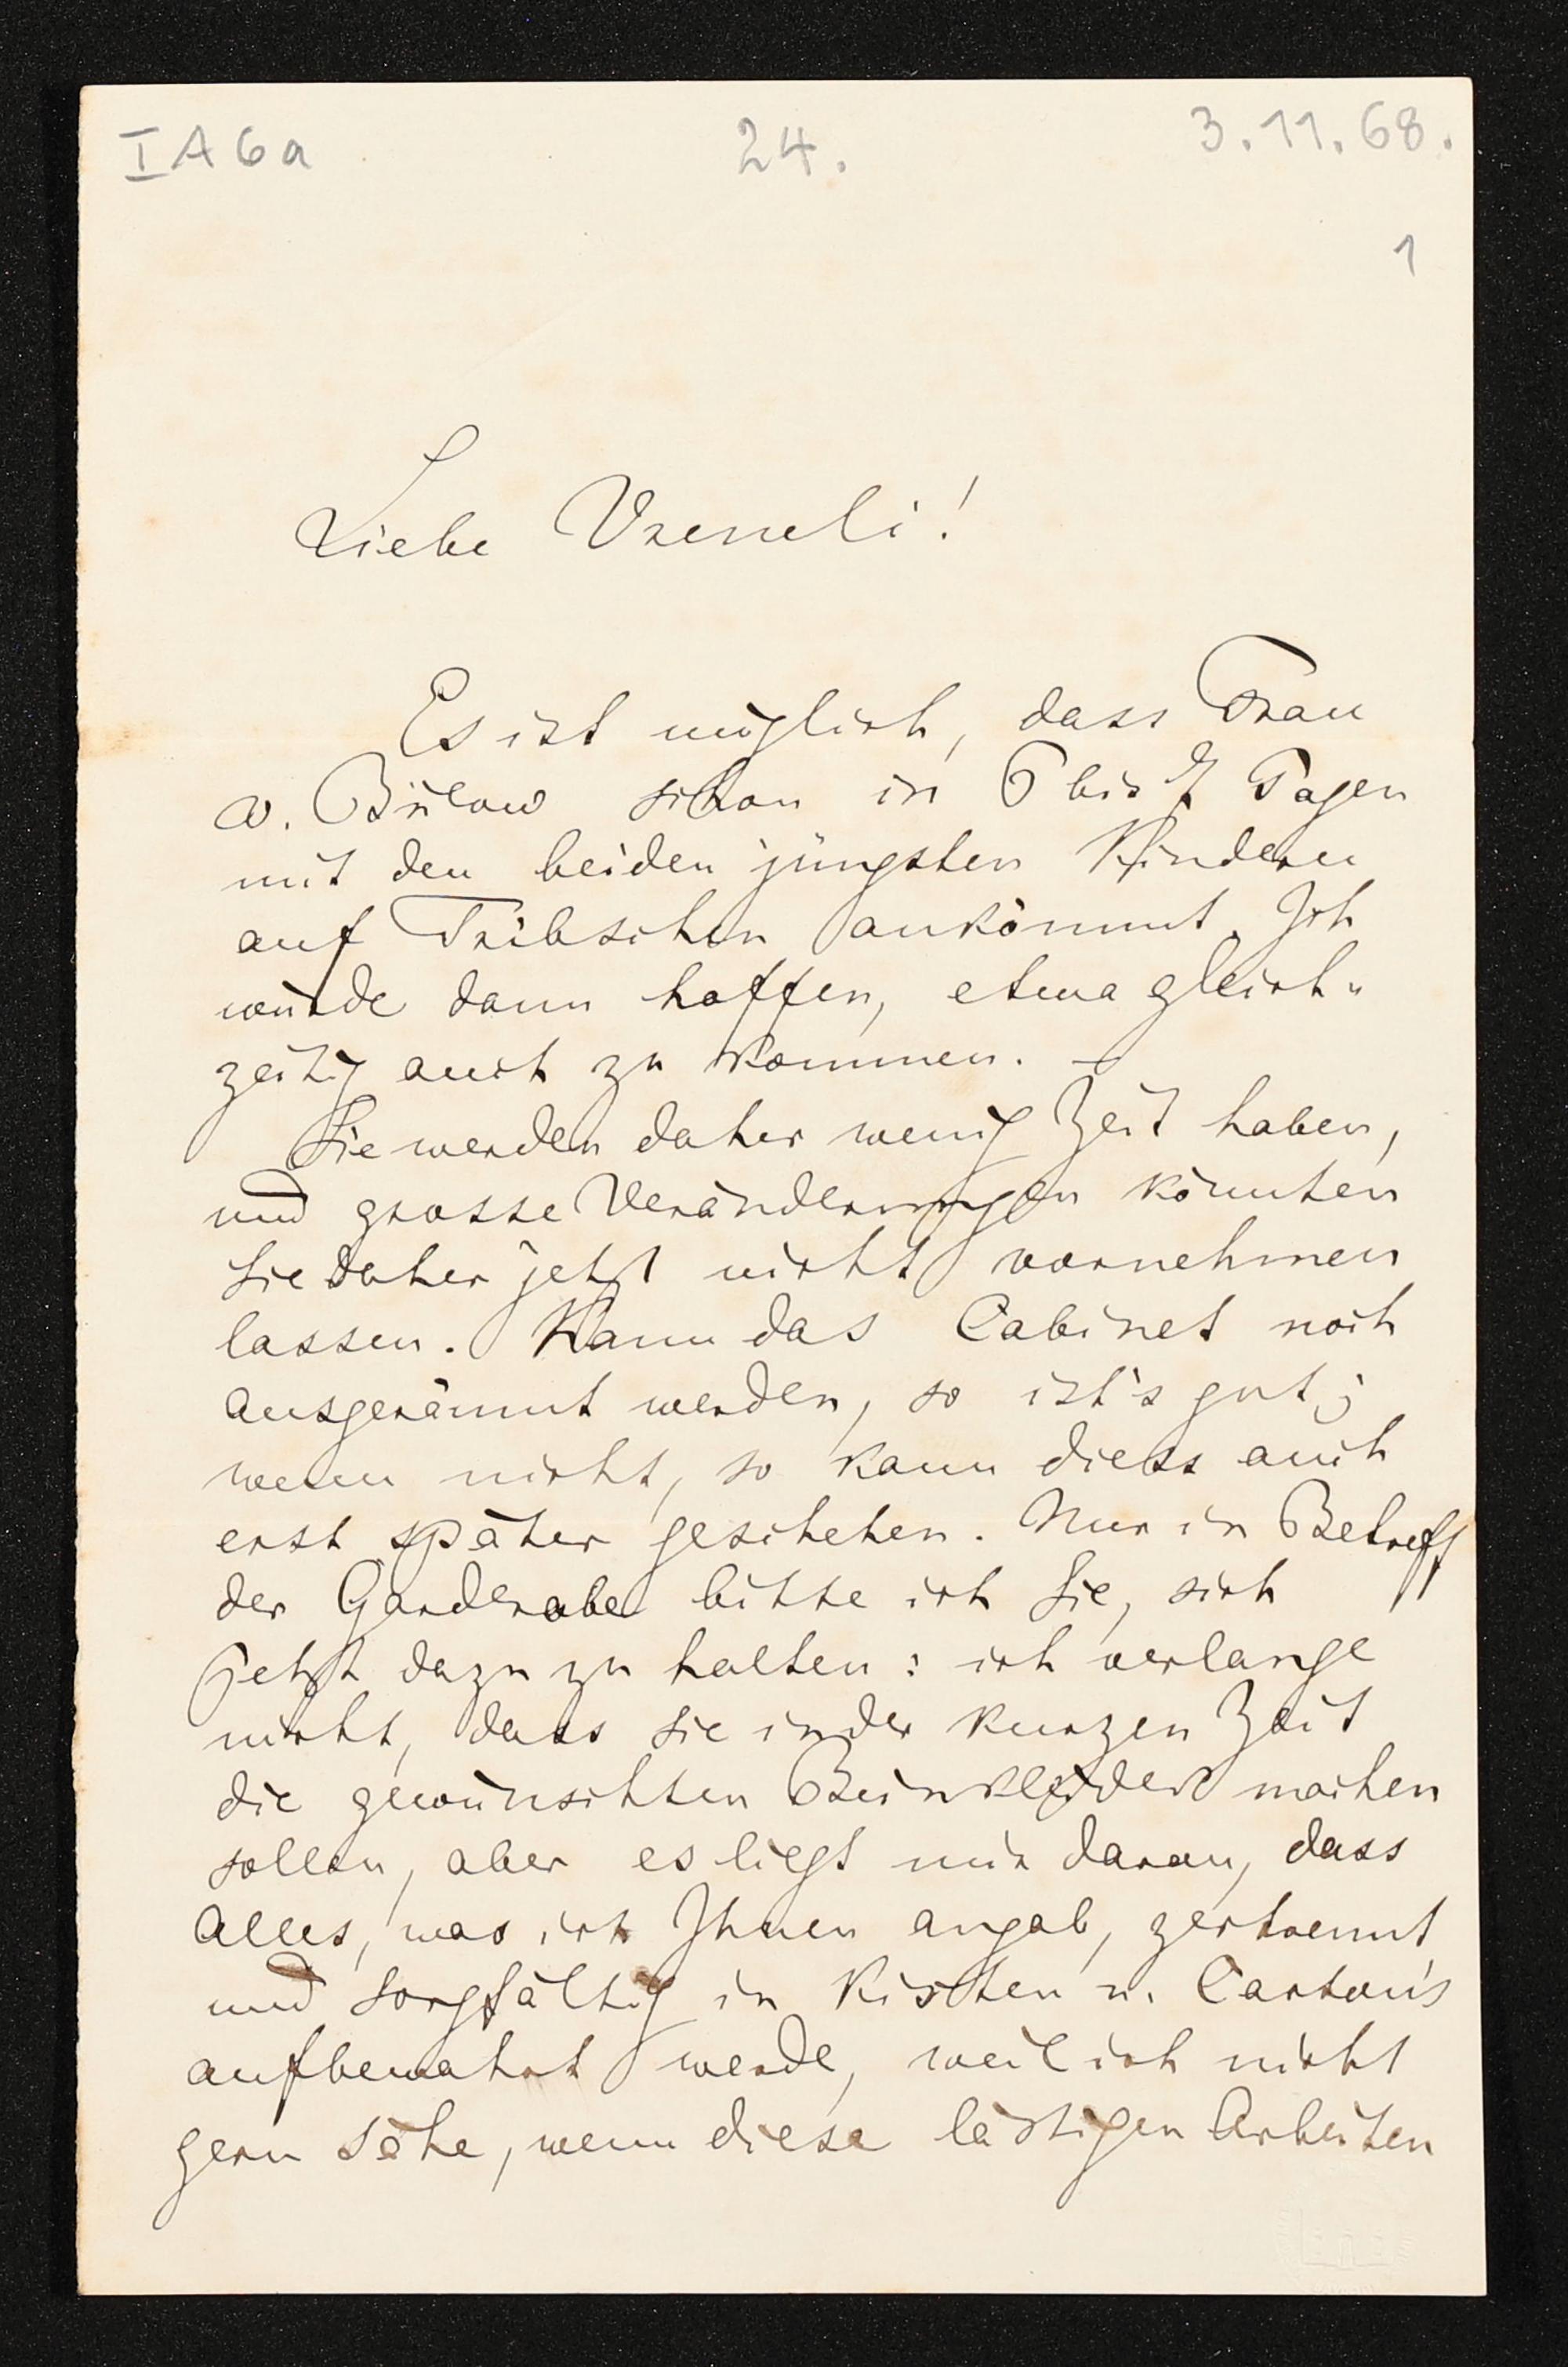 I A 6 a 24. 3.11.68.
1
Liebe Vreneli!
Es ist möglich, dass Frau
v. Bülow schon in 6 bis 7 Tagen
mit den beiden jüngsten Kindern
auf Tribschen ankömmt. Ich
würde dann hoffen, etwa gleich-
zeitig auch zu kommen. –
Sie werden daher wenig Zeit haben,
und grosse Veränderungen könnten
Sie daher jetzt nicht vornehmen
lassen. Kann das Cabinet noch
ausgeräumt werden, so ist's gut;
wenn nicht, so kann diess auch
erst später geschehen. Nur in Betreff
der Garderobe bitte ich Sie, sich
jetzt dazu zu halten: ich verlange
nicht, dass Sie in der kurzen Zeit
die gewünschten Beinkleider machen
sollen, aber es liegt mir daran, dass
Alles, was ich Ihnen angab, zertrennt
und sorgfältig in Kisten u. Carton's
aufbewahrt werde, weil ich nicht
gern sähe, wenn diese lästigen Arbeiten